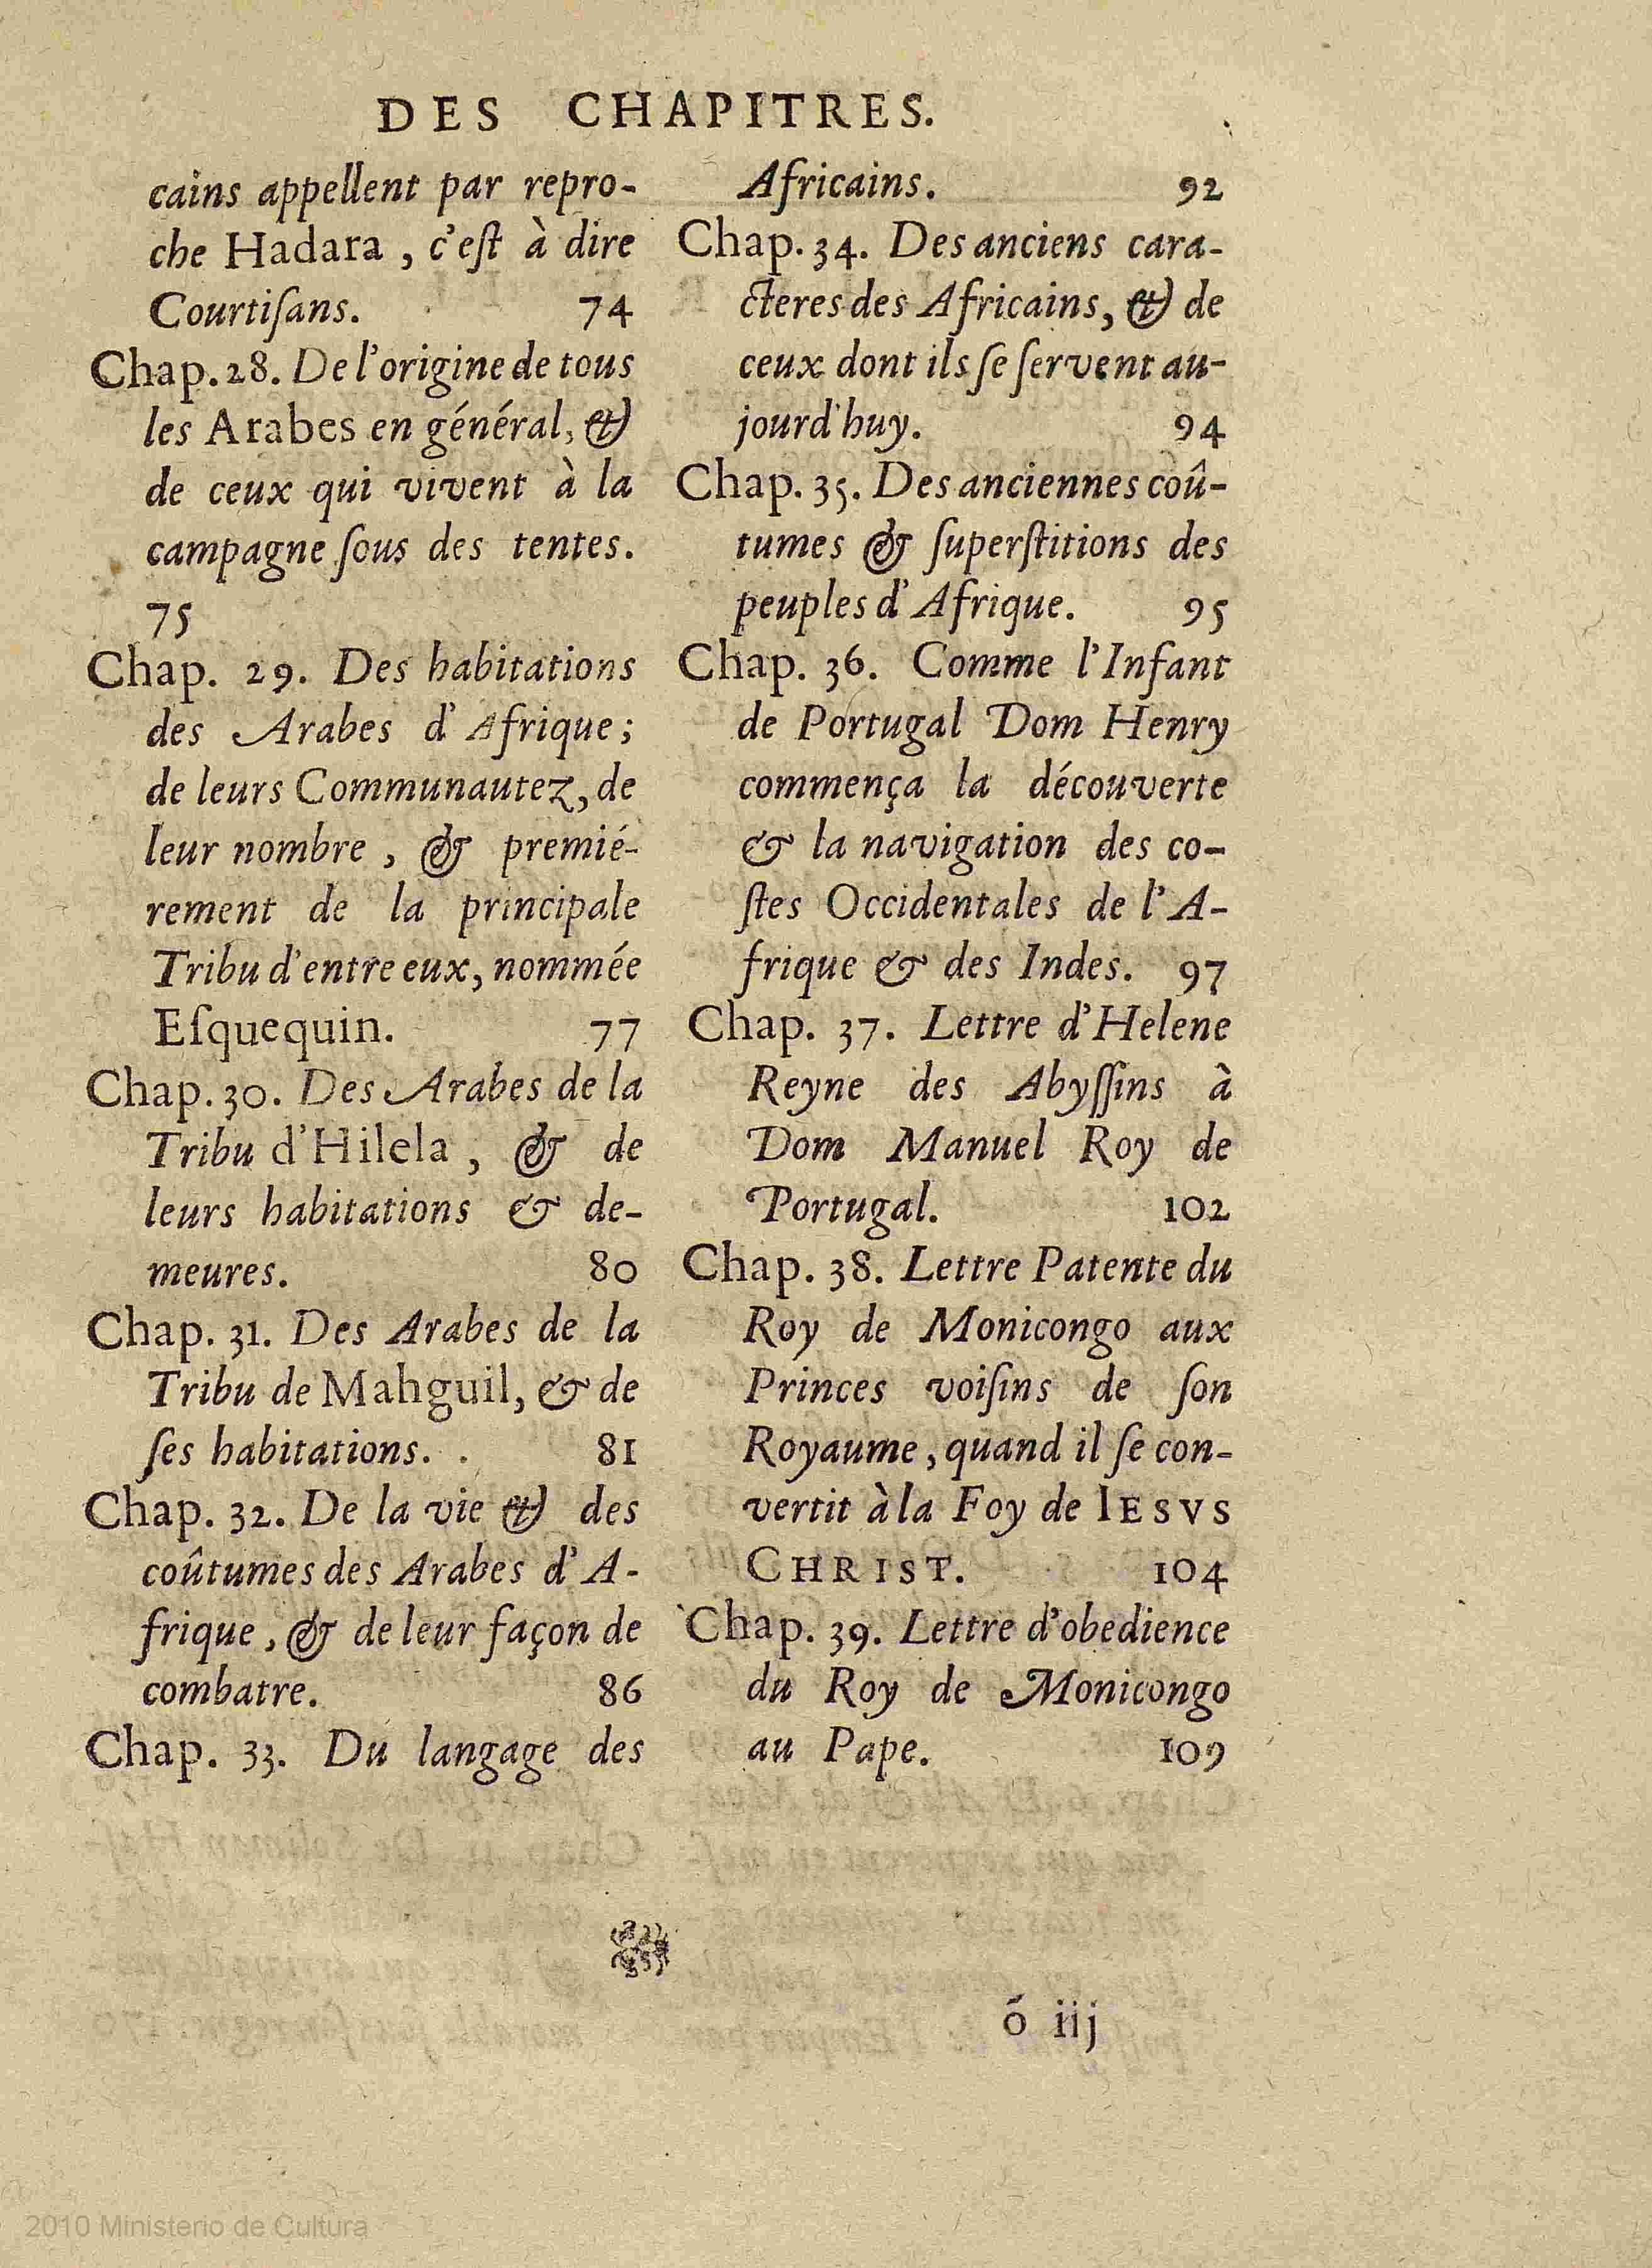 DES CHAPITRES.
cains appellent par repro-
che Hadara, c'eſt à dire
Courtiſans. 74
Chap. 28. De l'origine de tous
les Arabes en général, &
de ceux qui vivent à la
campagne ſous des tentes.
75
Chap. 29. Des habitations
des Arabes d'Afrique;
de leurs Communautez, de
leur nombre, & premié-
rement de la principale
Tribu d'entre eux, nommée
Eſquequin. 77
Chap. 30. Des Arabes de la
Tribu d'Hilela, & de
leurs habitations & de-
meures. 80
Chap. 31. Des Arabes de la
Tribu de Mahguil, & de
ſes habitations. 81
Chap. 32. De la vie & des
coûtumes des Arabes d'A-
frique, & de leur façon de
combatre. 86
Chap. 33. Du langage des
Africains. 92
Chap. 34. Des anciens cara-
cteres des Africains, & de
ceux dont ils ſe ſervent au-
jourd'huy. 94
Chap. 35. Des anciennes coû-
tumes & ſuperſtitions des
peuples d'Afrique. 95
Chap. 36. Comme l'Infant
de Portugal Dom Henry
commença la découverte
& la navigation des co-
ſtes Occidentales de l'A-
frique & des Indes. 97
Chap. 37. Lettre d'Helene
Reyne des Abyſſins à
Dom Manuel Roy de
Portugal. 102
Chap. 38. Lettre Patente du
Roy de Monicongo aux
Princes voiſins de ſon
Royaume, quand il ſe con-
vertit à la Foy de IESVS
CHRIST. 104
Chap. 39. Lettre d'obedience
du Roy de Monicongo
au Pape. 109
ó iij
2010 Ministerio de Cultura